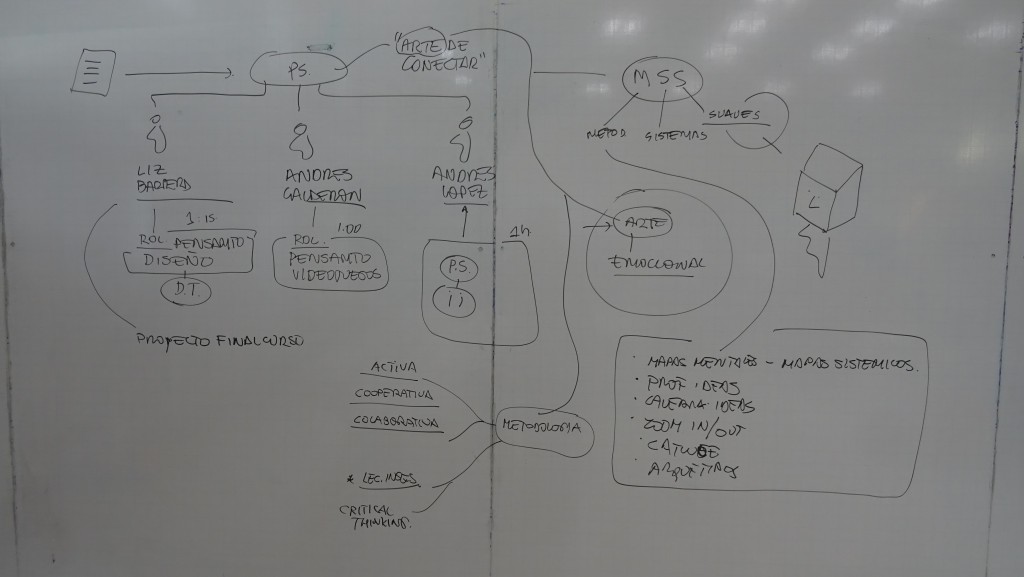 P.S.
"ARTE DE
CONECTAR"
MSS
METOD
SISTEMAS
SUAVES
LIZ
ANDRES
CALDERAN
ANDRES
LOPEZ
1:15
ROL PENSAMTO
DISEÑO
D.T.
1.00
ROL.
PENSAMTO
VIDEOJUEGOS
1h
P.S.
ARTE
EMOCIONAL
PROYECTO FINAL CURSO
ACTIVA
COOPERATIVA
COLABORATIVA
METODOLOGIA
* LEC. INGES
CRITICAL
THINKING.
· MAPAS MENTALES - MAPAS SISTEMICOS.
· PROF IDEAS
· IDEAS
· ZOOM IN/OUT
· CATWOE
· ARQUETIPOS